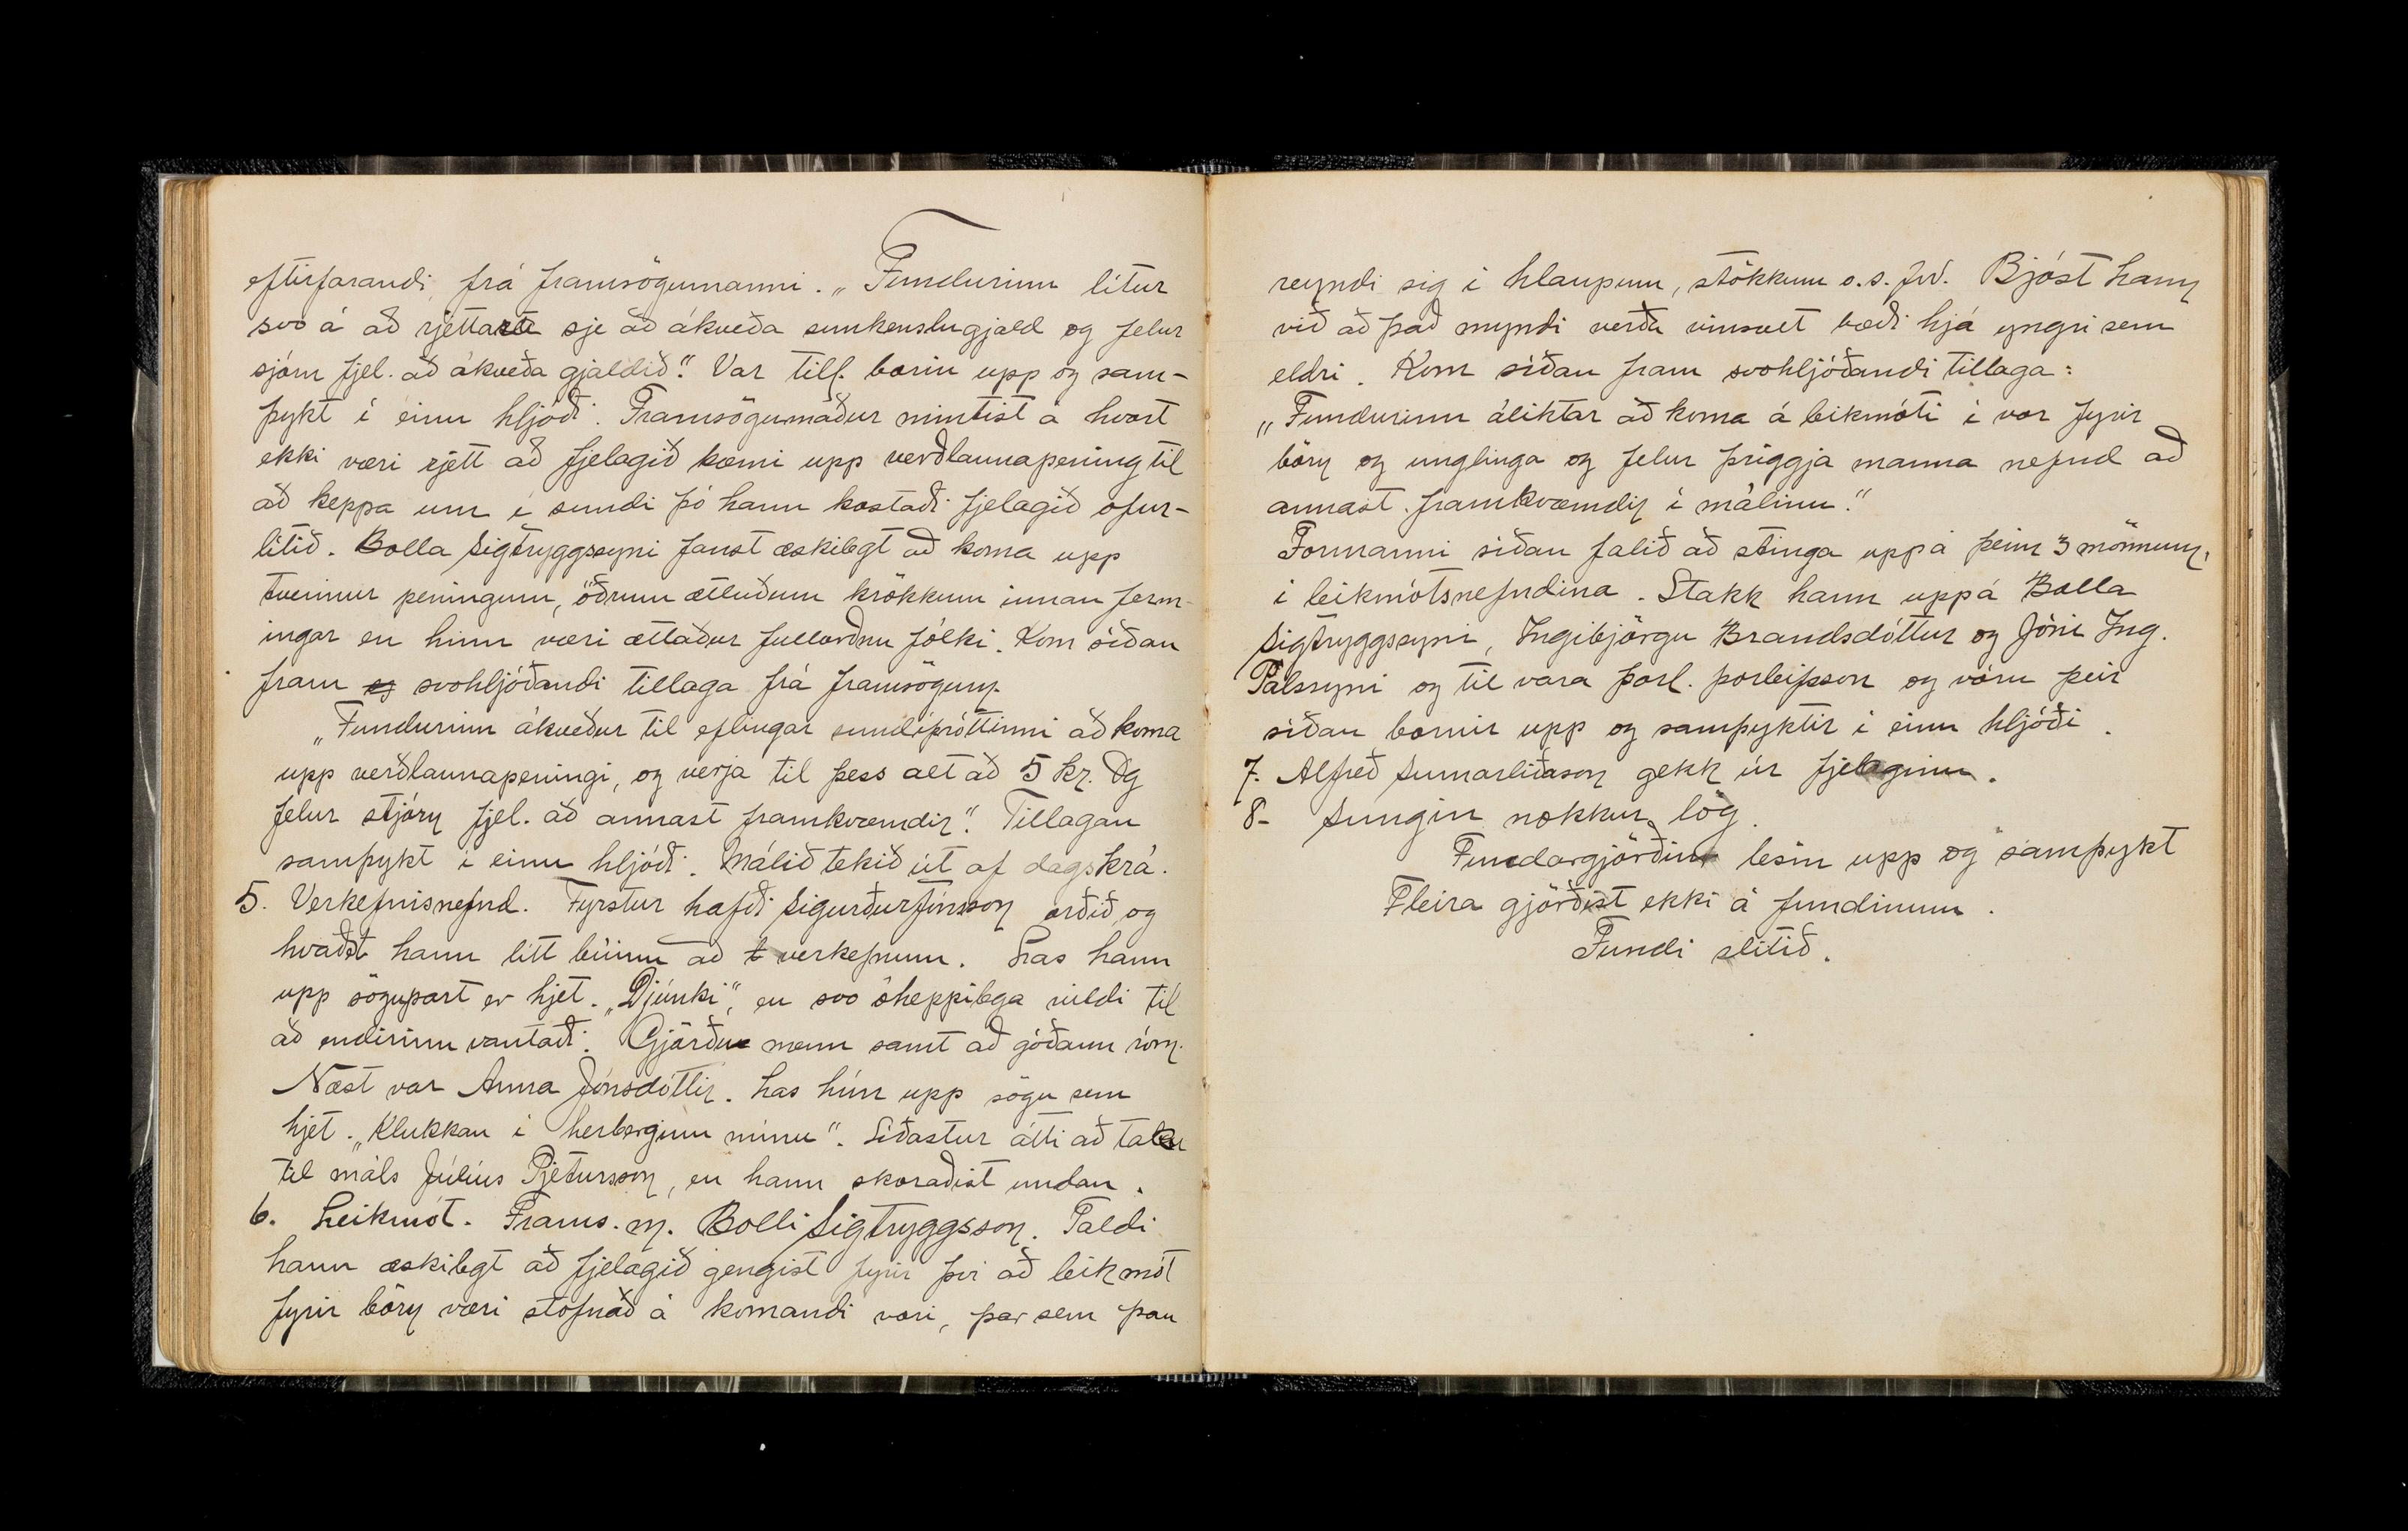 eftirfarandi frá framsögumanni. „Fundurinn lítur
svo á að rjettara sje að ákveða sunkenslugjald og felur
sjórn fjel. að ákveða gjaldið." Var till. borin upp og sam-
þykt í einu hljóði. Framsögumaður mintist á hvort
ekki væri rjett að fjelagið kæmi upp verðlaunapening til
að keppa um í sundi þó hann kostaði fjelagið ofur-
lítið. Bolla Sigtryggssyni fanst æskilegt að koma upp
tveimur peningum, öðrum ætluðum krökkum innan ferm-
ingar en hinn væri ætlaður fullorðnu fólki. Kom síðan
fram svohljóðandi tillaga frá framsögum.
„Fundurinn ákveður til eflingar sundíþróttinni að koma
upp verðlaunapeningi, og verja til þess alt að 5 kr. Og
felur stjórn fjel. að annast framkvæmdir." Tillagan
samþykt í einu hljóði. Málið tekið út af dagskrá.
5. Verkefnisnefnd. Fyrstur hafði Sigurður Finsson orðið, og
hvaðst hann lítt búinn að verkefnum. Las hann
upp sögupart er hjet. „Djúnki", en svo óheppilega vildi til
að endirinn vantaði. Gjörðu menn samt að góðann róm.
Næst var Anna Jónsdóttir. Las hún upp sögu sem
hjet. „Klukkan í herberginu mínu". Síðastur átti að taka
til máls Júlíus Pjetursson, en hann skoraðist undan.
6. Leikmót. Frams.m. Bolli Sigtryggsson. Taldi
hann æskilegt að fjelagið gengist fyrir því að leikmót
fyrir börn væri stofnað á komandi vori, þar sem þau
reyndi sig í hlaupum, stökkum o.s.frv. Bjóst hann
við að það myndi verða vinsælt bæði hjá yngri sem
eldri. Kom síðan fram svohljóðandi tillaga:
„Fundurinn áliktar að koma á leikmóti í vor fyrir
börn og unglinga og felur þriggja manna nefnd að
annast framkvæmdir í málinu."
Formanni síðan falið að stinga uppá þeim 3 mönnum,
í leikmótsnefndina. Stakk hann uppá Bolla
Sigtryggssyni, Ingibjörgu Brandsdóttur og Jóni Ing.
Pálssyni og til vara Þorl. Þorleifsson og vóru þeir
síðan bornir upp og samþyktir í einu hljóði.
7. Alfreð Sumarliðason gekk úr fjelaginu.
8- Sungin nokkur lög.
Fundargjörðin lesin upp og samþykt
Fleira gjörðist ekki á fundinum.
Fundi slitið.